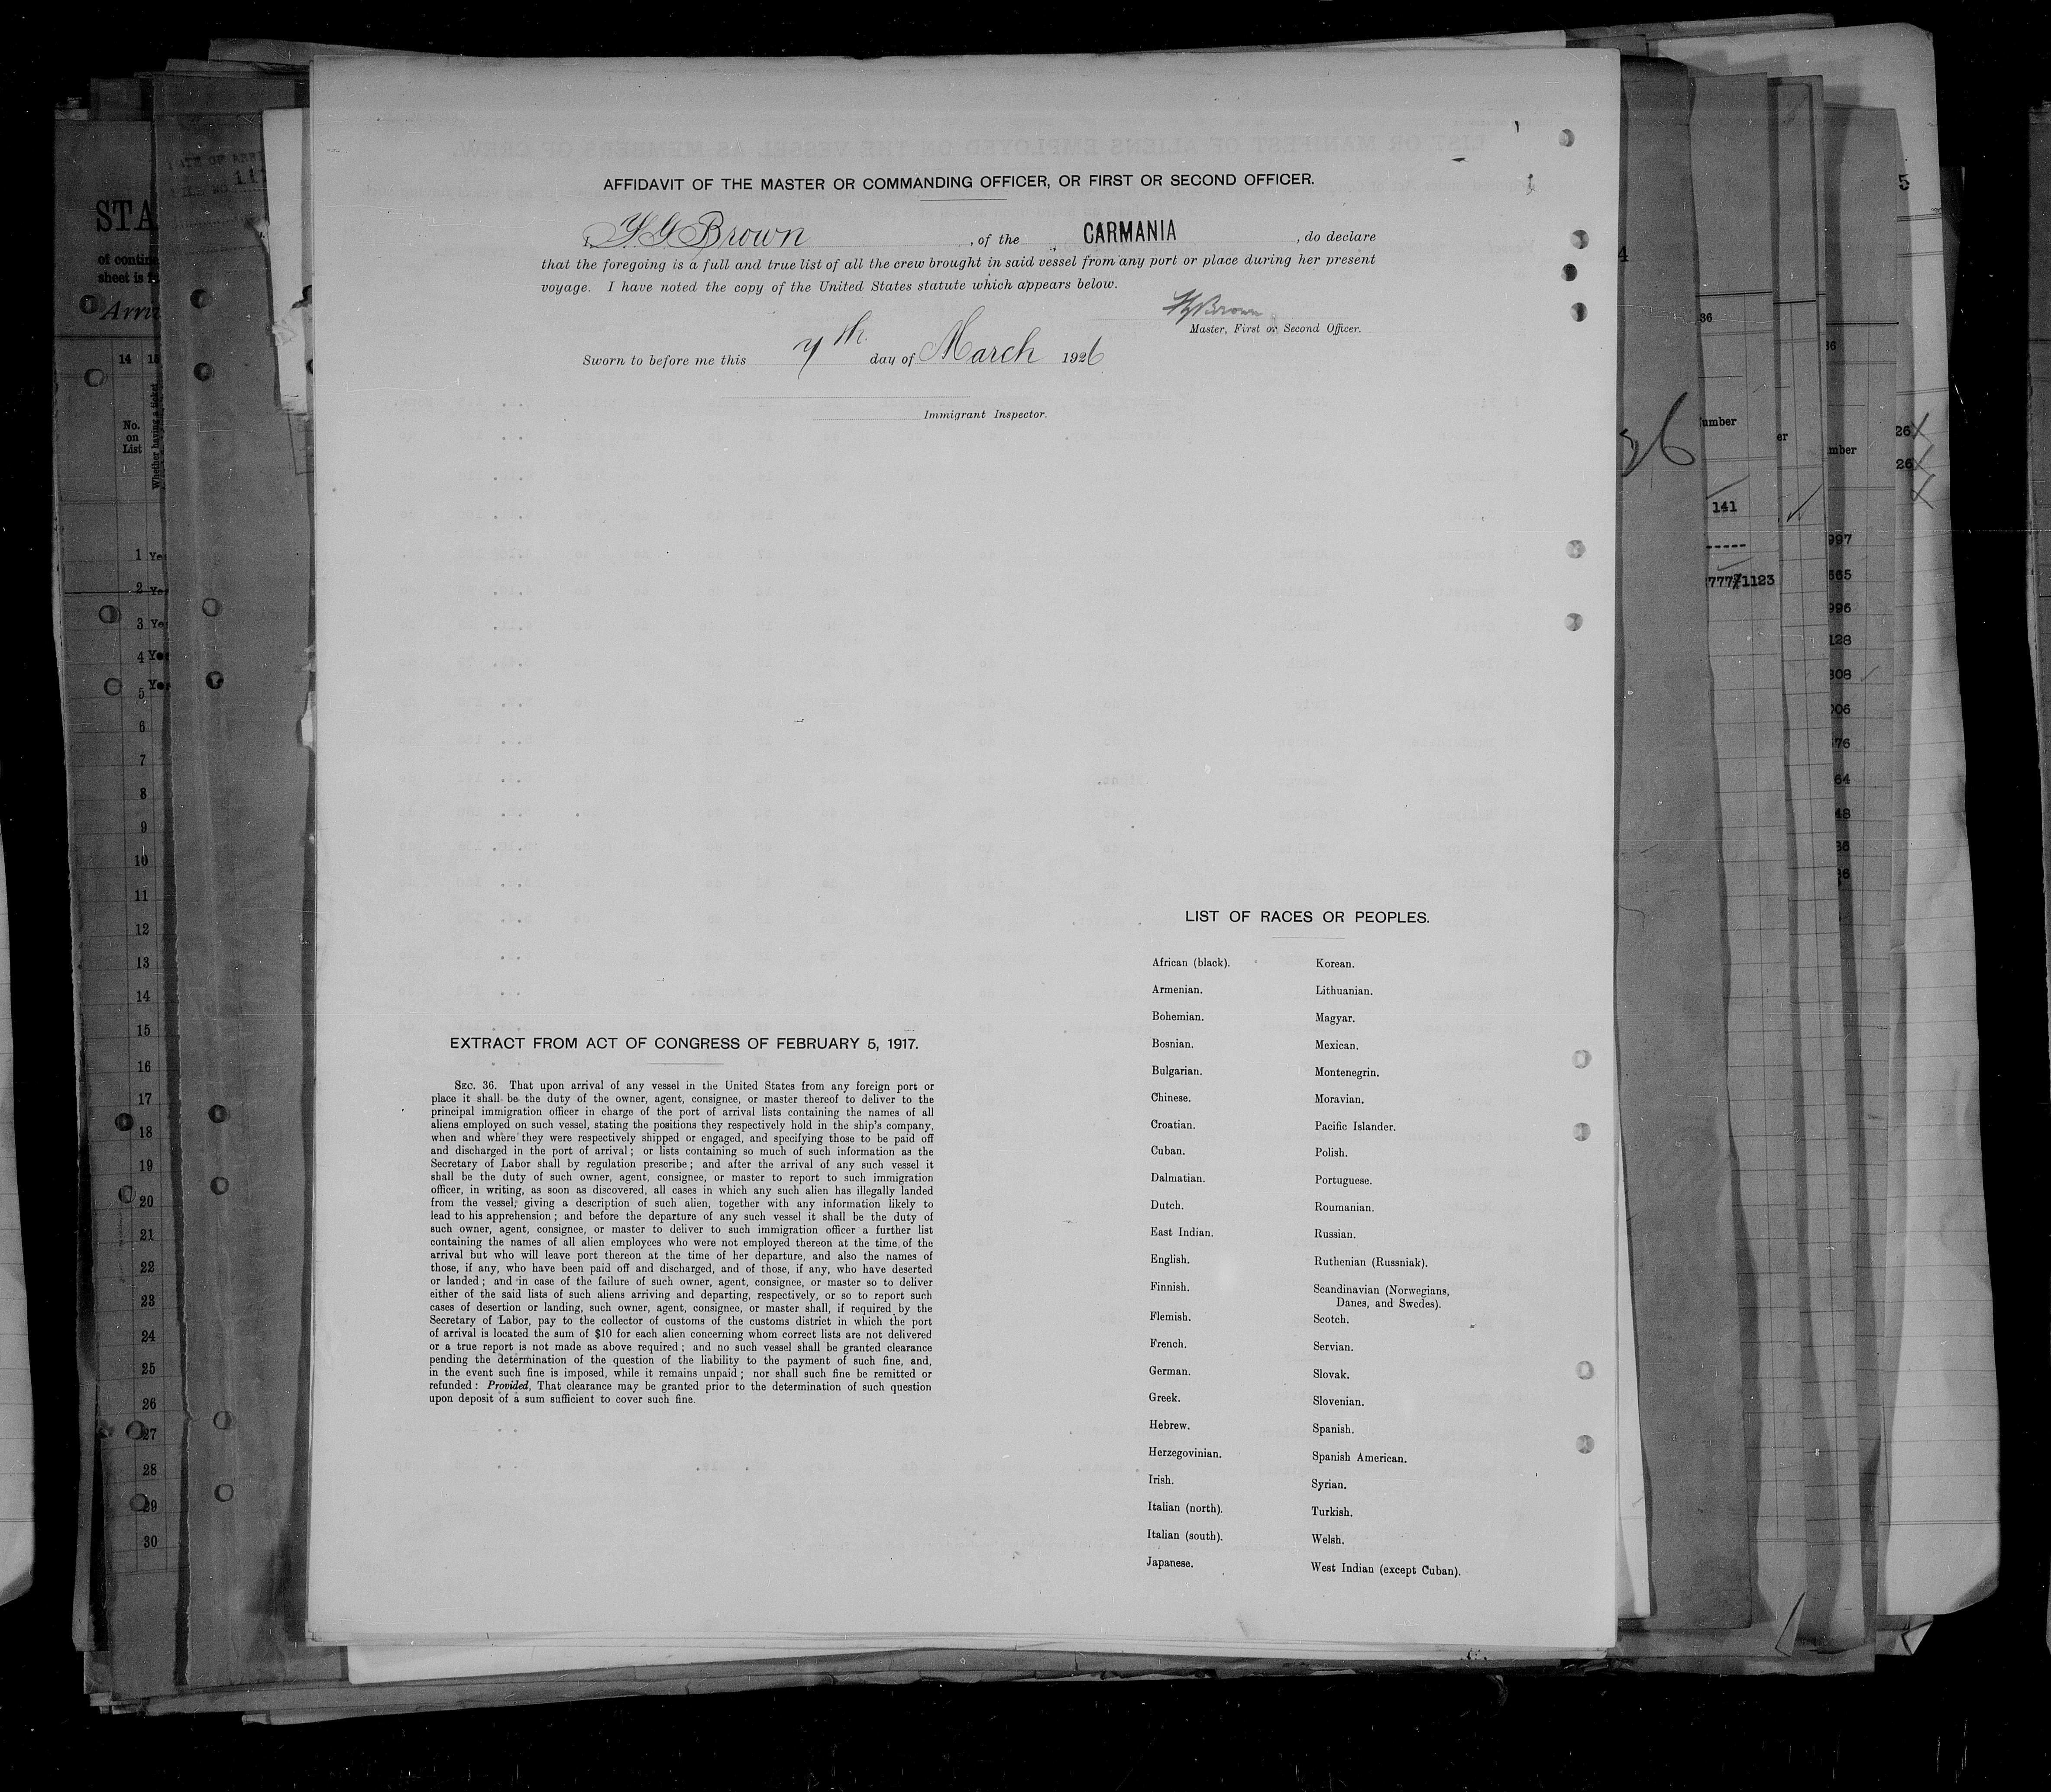 AFFIDAVIT OF THE MASTER OR COMMANDING OFFICER, OR FIRST OR SECOND OFFICER.
I, Brown, of the CARMANIA, do declare
that the foregoing is a full and true list of all the crew brought in said vessel from any port or place during her present
voyage. I have noted the copy of the United States statute which appears below.
Brown
Master, First or Second Officer.
Sworn to before me this 7th. day of March 1926
Immigrant Inspector.
EXTRACT FROM ACT OF CONGRESS OF FEBRUARY 5, 1917.
SEC. 36. That upon arrival of any vessel in the United States from any foreign port or
place it shall be the duty of the owner, agent, consignee, or master thereof to deliver to the
principal immigration officer in charge of the port of arrival lists containing the names of all
aliens employed on such vessel, stating the positions they respectively hold in the ship's company,
when and where they were respectively shipped or engaged, and specifying those to be paid off
and discharged in the port of arrival; or lists containing so much of such information as the
Secretary of Labor shall by regulation prescribe; and after the arrival of any such vessel it
shall be the duty of such owner, agent, consignee, or master to report to such immigration
officer, in writing, as soon as discovered, all cases in which any such alien has illegally landed
from the vessel, giving a description of such alien, together with any information likely to
lead to his apprehension; and before the departure of any such vessel it shall be the duty of
such owner, agent, consignee, or master to deliver to such immigration officer a further list
containing the names of all alien employees who were not employed thereon at the time of the
arrival but who will leave port thereon at the time of her departure, and also the names of
those, if any, who have been paid off and discharged, and of those, if any, who have deserted
or landed; and in case of the failure of such owner, agent, consignee, or master so to deliver
either of the said lists of such aliens arriving and departing, respectively, or so to report such
cases of desertion or landing, such owner, agent, consignee, or master shall, if required by the
Secretary of Labor, pay to the collector of customs of the customs district in which the port
of arrival is located the sum of $10 for each alien concerning whom correct lists are not delivered
or a true report is not made as above required; and no such vessel shall be granted clearance
pending the determination of the question of the liability to the payment of such fine, and,
in the event such fine is imposed, while it remains unpaid; nor shall such fine be remitted or
refunded: Provided, That clearance may be granted prior to the determination of such question
upon deposit of a sum sufficient to cover such fine.
LIST OF RACES OR PEOPLES.
African (black).
Armenian.
Bohemian.
Bosnian.
Bulgarian.
Chinese.
Croatian.
Cuban.
Dalmatian.
Dutch.
East Indian.
English.
Finnish.
Flemish.
French.
German.
Greek.
Hebrew.
Herzegovinian.
Irish.
Italian (north).
Italian (south).
Japanese.
Korean.
Lithuanian.
Magyar.
Mexican.
Montenegrin.
Moravian.
Pacific Islander.
Polish.
Portuguese.
Roumanian.
Russian.
Ruthenian (Russniak).
Scandinavian (Norwegians,
Danes, and Swedes).
Scotch.
Servian.
Slovak.
Slovenian.
Spanish.
Spanish American.
Syrian.
Turkish.
Welsh.
West Indian (except Cuban).